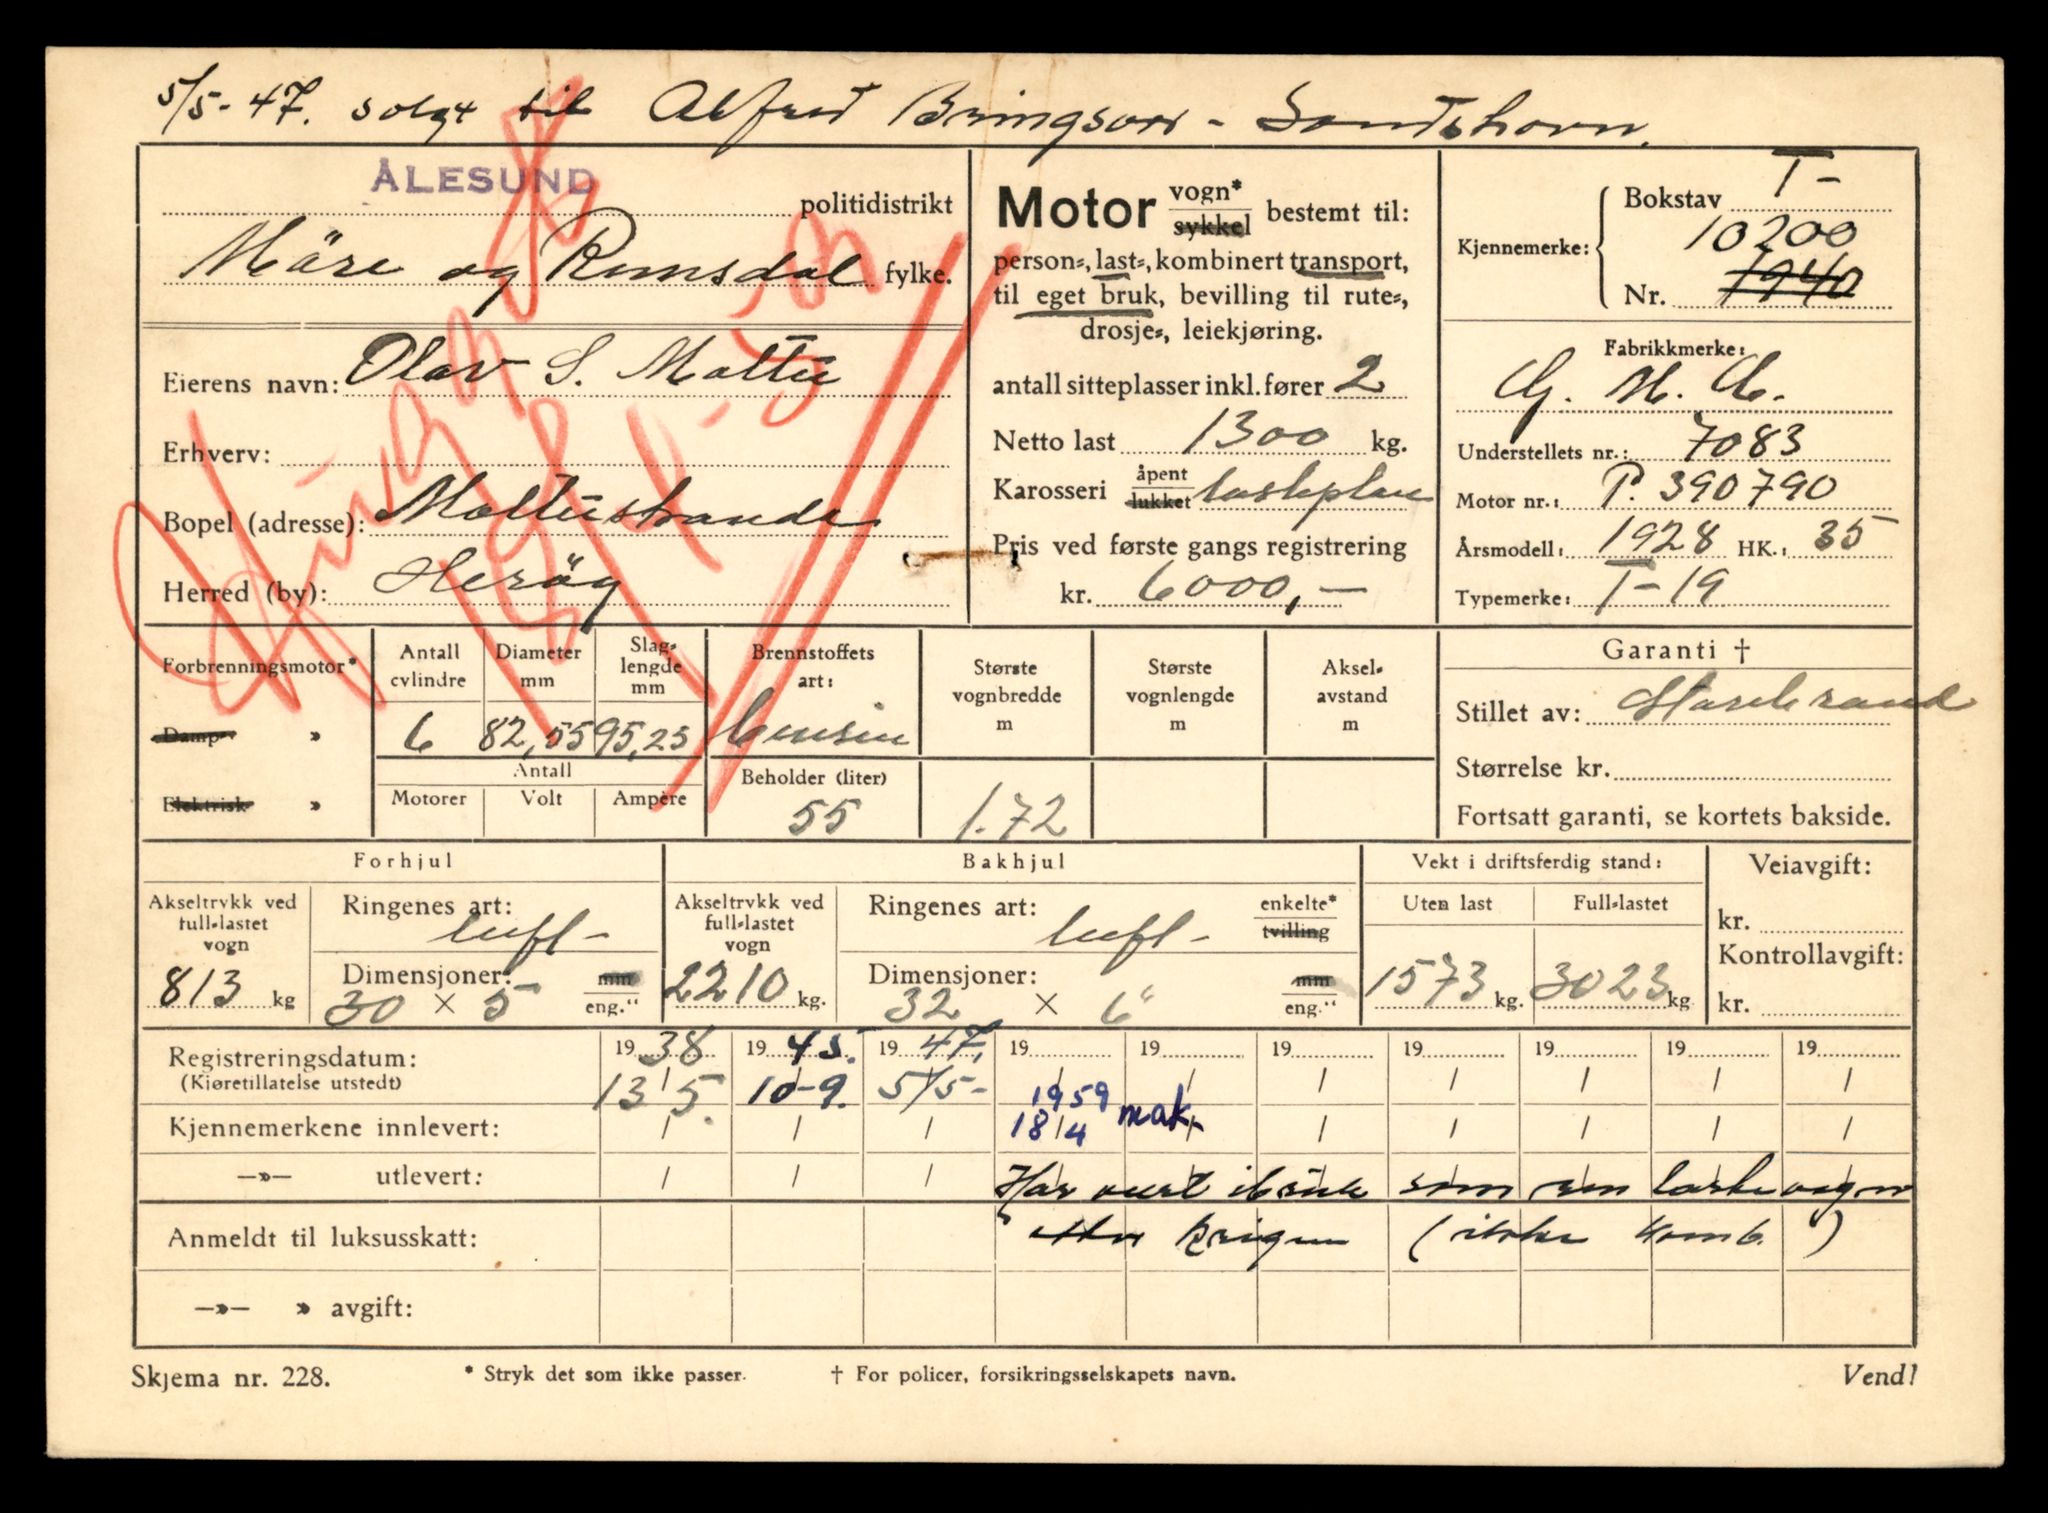 5/5-47. solgt til Alfred Bringsvor - Sandshavn.
ÅLESUND politidistrikt
Möre og Romsdal fylke.
Eierens navn: Olav S. Moltu
Erhverv:
Bopel (adresse): Moltustranda
Herred (by): Herøy
18/4-59
Motor vogn* sykkel bestemt til:
person-, last-, kombinert transport,
til eget bruk, bevilling til rute-,
drosje-, leiekjøring.
antall sitteplasser inkl. fører 2
Netto last 1300 kg.
Karosseri åpent lukket lasteplan
Pris ved første gangs registrering
kr. 6000,-
Kjennemerke: Bokstav T-
10200
Nr. 1940
Fabrikkmerke:
G. M. C.
Understellets nr.: 7083
Motor nr.: P. 390790
Årsmodell: 1928 HK.: 35
Typemerke: T-19
Forbrenningsmotor*
Damp »
Elektrisk »
Antall cylindre 6
Diameter mm 82,55
Slaglengde mm 95,25
Antall
Motorer Volt Ampère
Brennstoffets art: bensin
Beholder (liter) 55
Største vognbredde m 1.72
Største vognlengde m
Akselavstand m
Garanti †
Stillet av: Storebrand
Størrelse kr.
Fortsatt garanti, se kortets bakside.
Forhjul
Akseltrykk ved full-lastet vogn 813 kg
Ringenes art: luft-
Dimensjoner: 30 × 5 mm eng."
Bakhjul
Akseltrykk ved full-lastet vogn 2210 kg.
Ringenes art: luft- enkelte* tvilling
Dimensjoner: 32 × 6" mm eng."
Vekt i driftsferdig stand:
Uten last 1573 kg.
Full-lastet 3023 kg
Veiavgift:
kr.
Kontrollavgift:
kr.
Registreringsdatum: 1938 1945. 1947. 19 19 19 19 19 19 19
(Kjøretillatelse utstedt) 13/5. 10-9. 5/5-
1959
Kjennemerkene innlevert: 18/4 mak.
—»— utlevert: Har vært i bruk som ren lastevogn
Anmeldt til luksusskatt: etter krigen (ikke komb.)
—»— » avgift:
Skjema nr. 228. * Stryk det som ikke passer. † For policer, forsikringsselskapets navn. Vend!